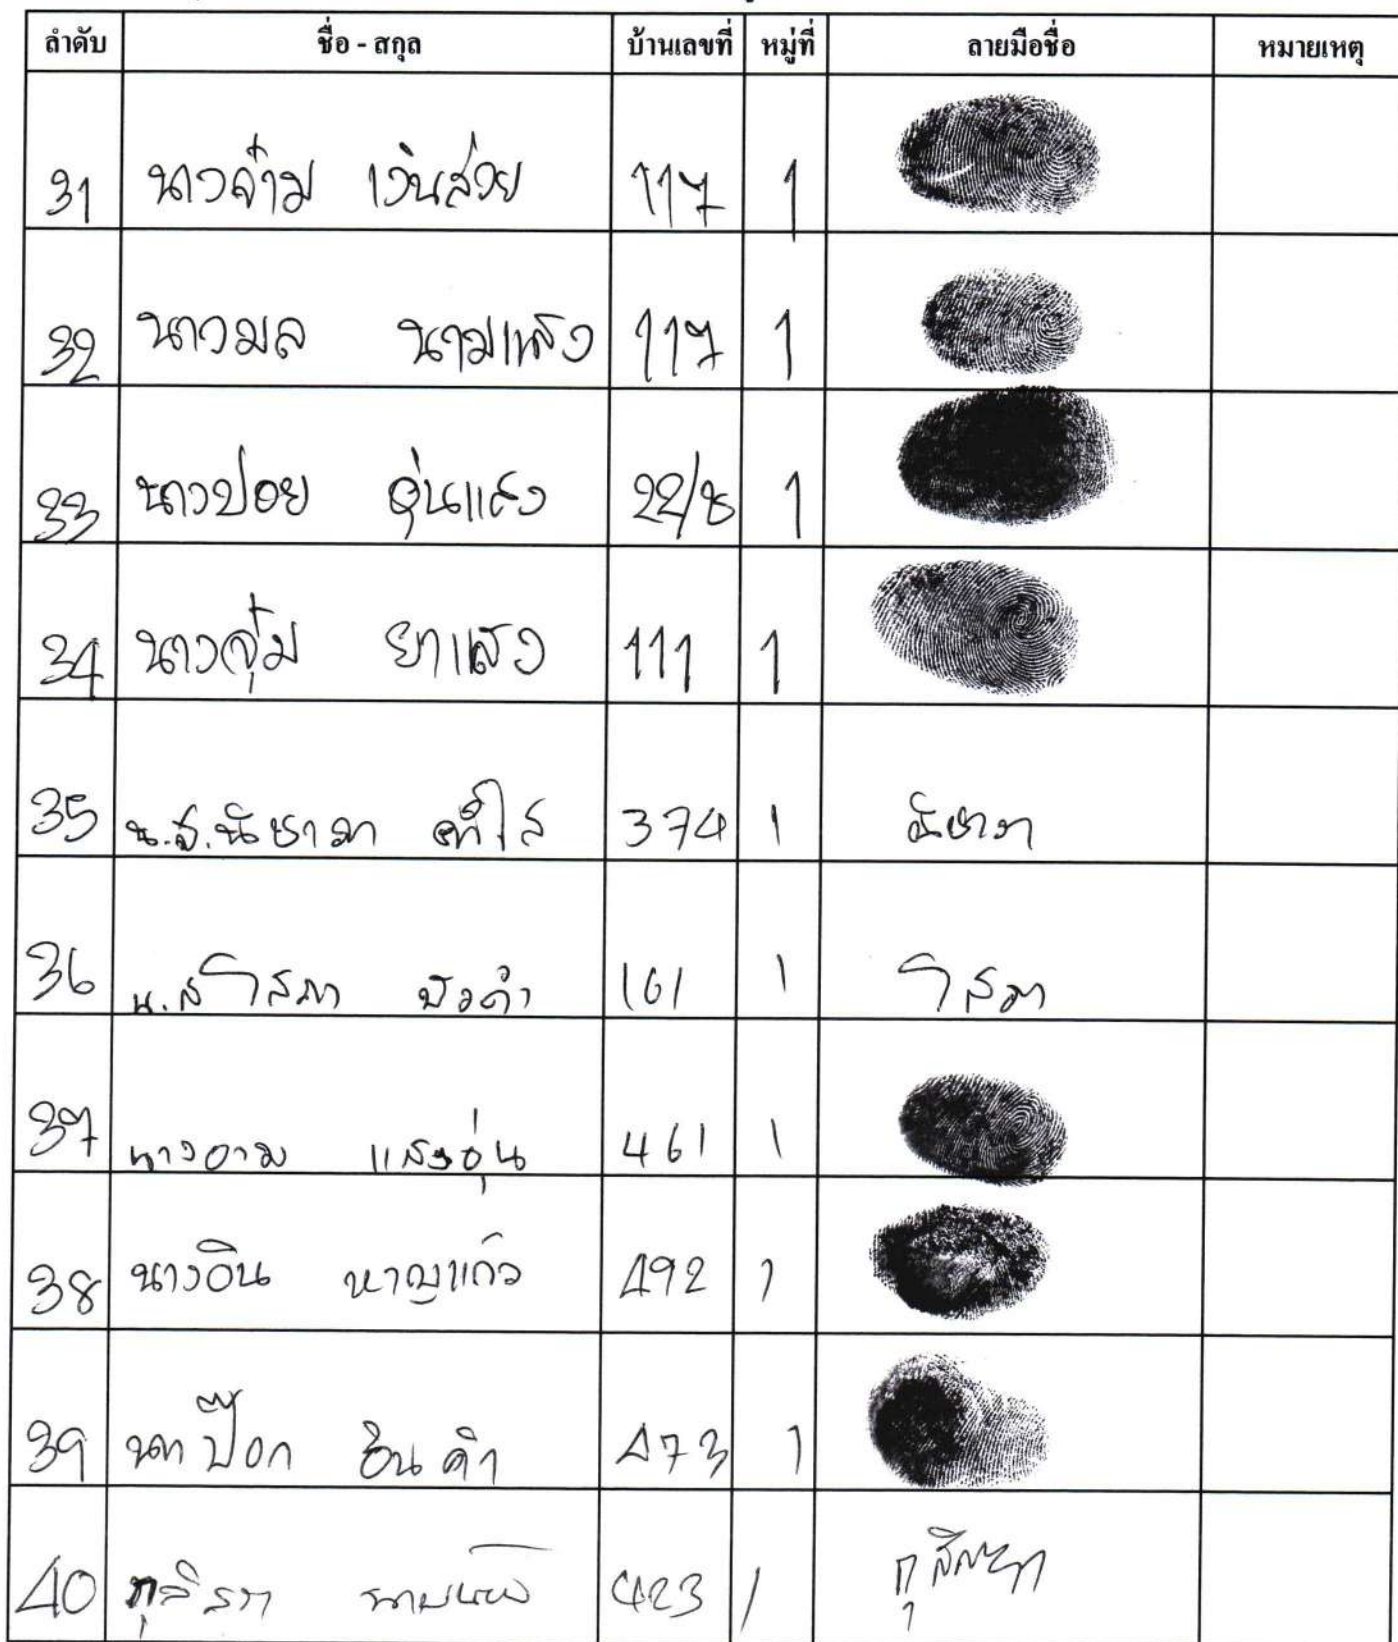 ลำดับ ชื่อ - สกุล บ้านเลขที่ หมู่ที่ ลายมือชื่อ หมายเหตุ
31 นางจ๋าม เงินส่วย 117 1
32 นางมล นามแสง 117 1
33 นางป่อย อุ่นแสง 22/8 1
34 นางจุ๋ม ยาแสง 111 1
35 น.ส.นิชาภา 374 1
36 น.ส โสภา บัวคำ 161 1 โสภา
37 นางอาม แสงอุ่น 461 1
38 นางอิน หาญแก้ว 492 1
39 นาป๊อก อินคำ 473 1
40 423 1